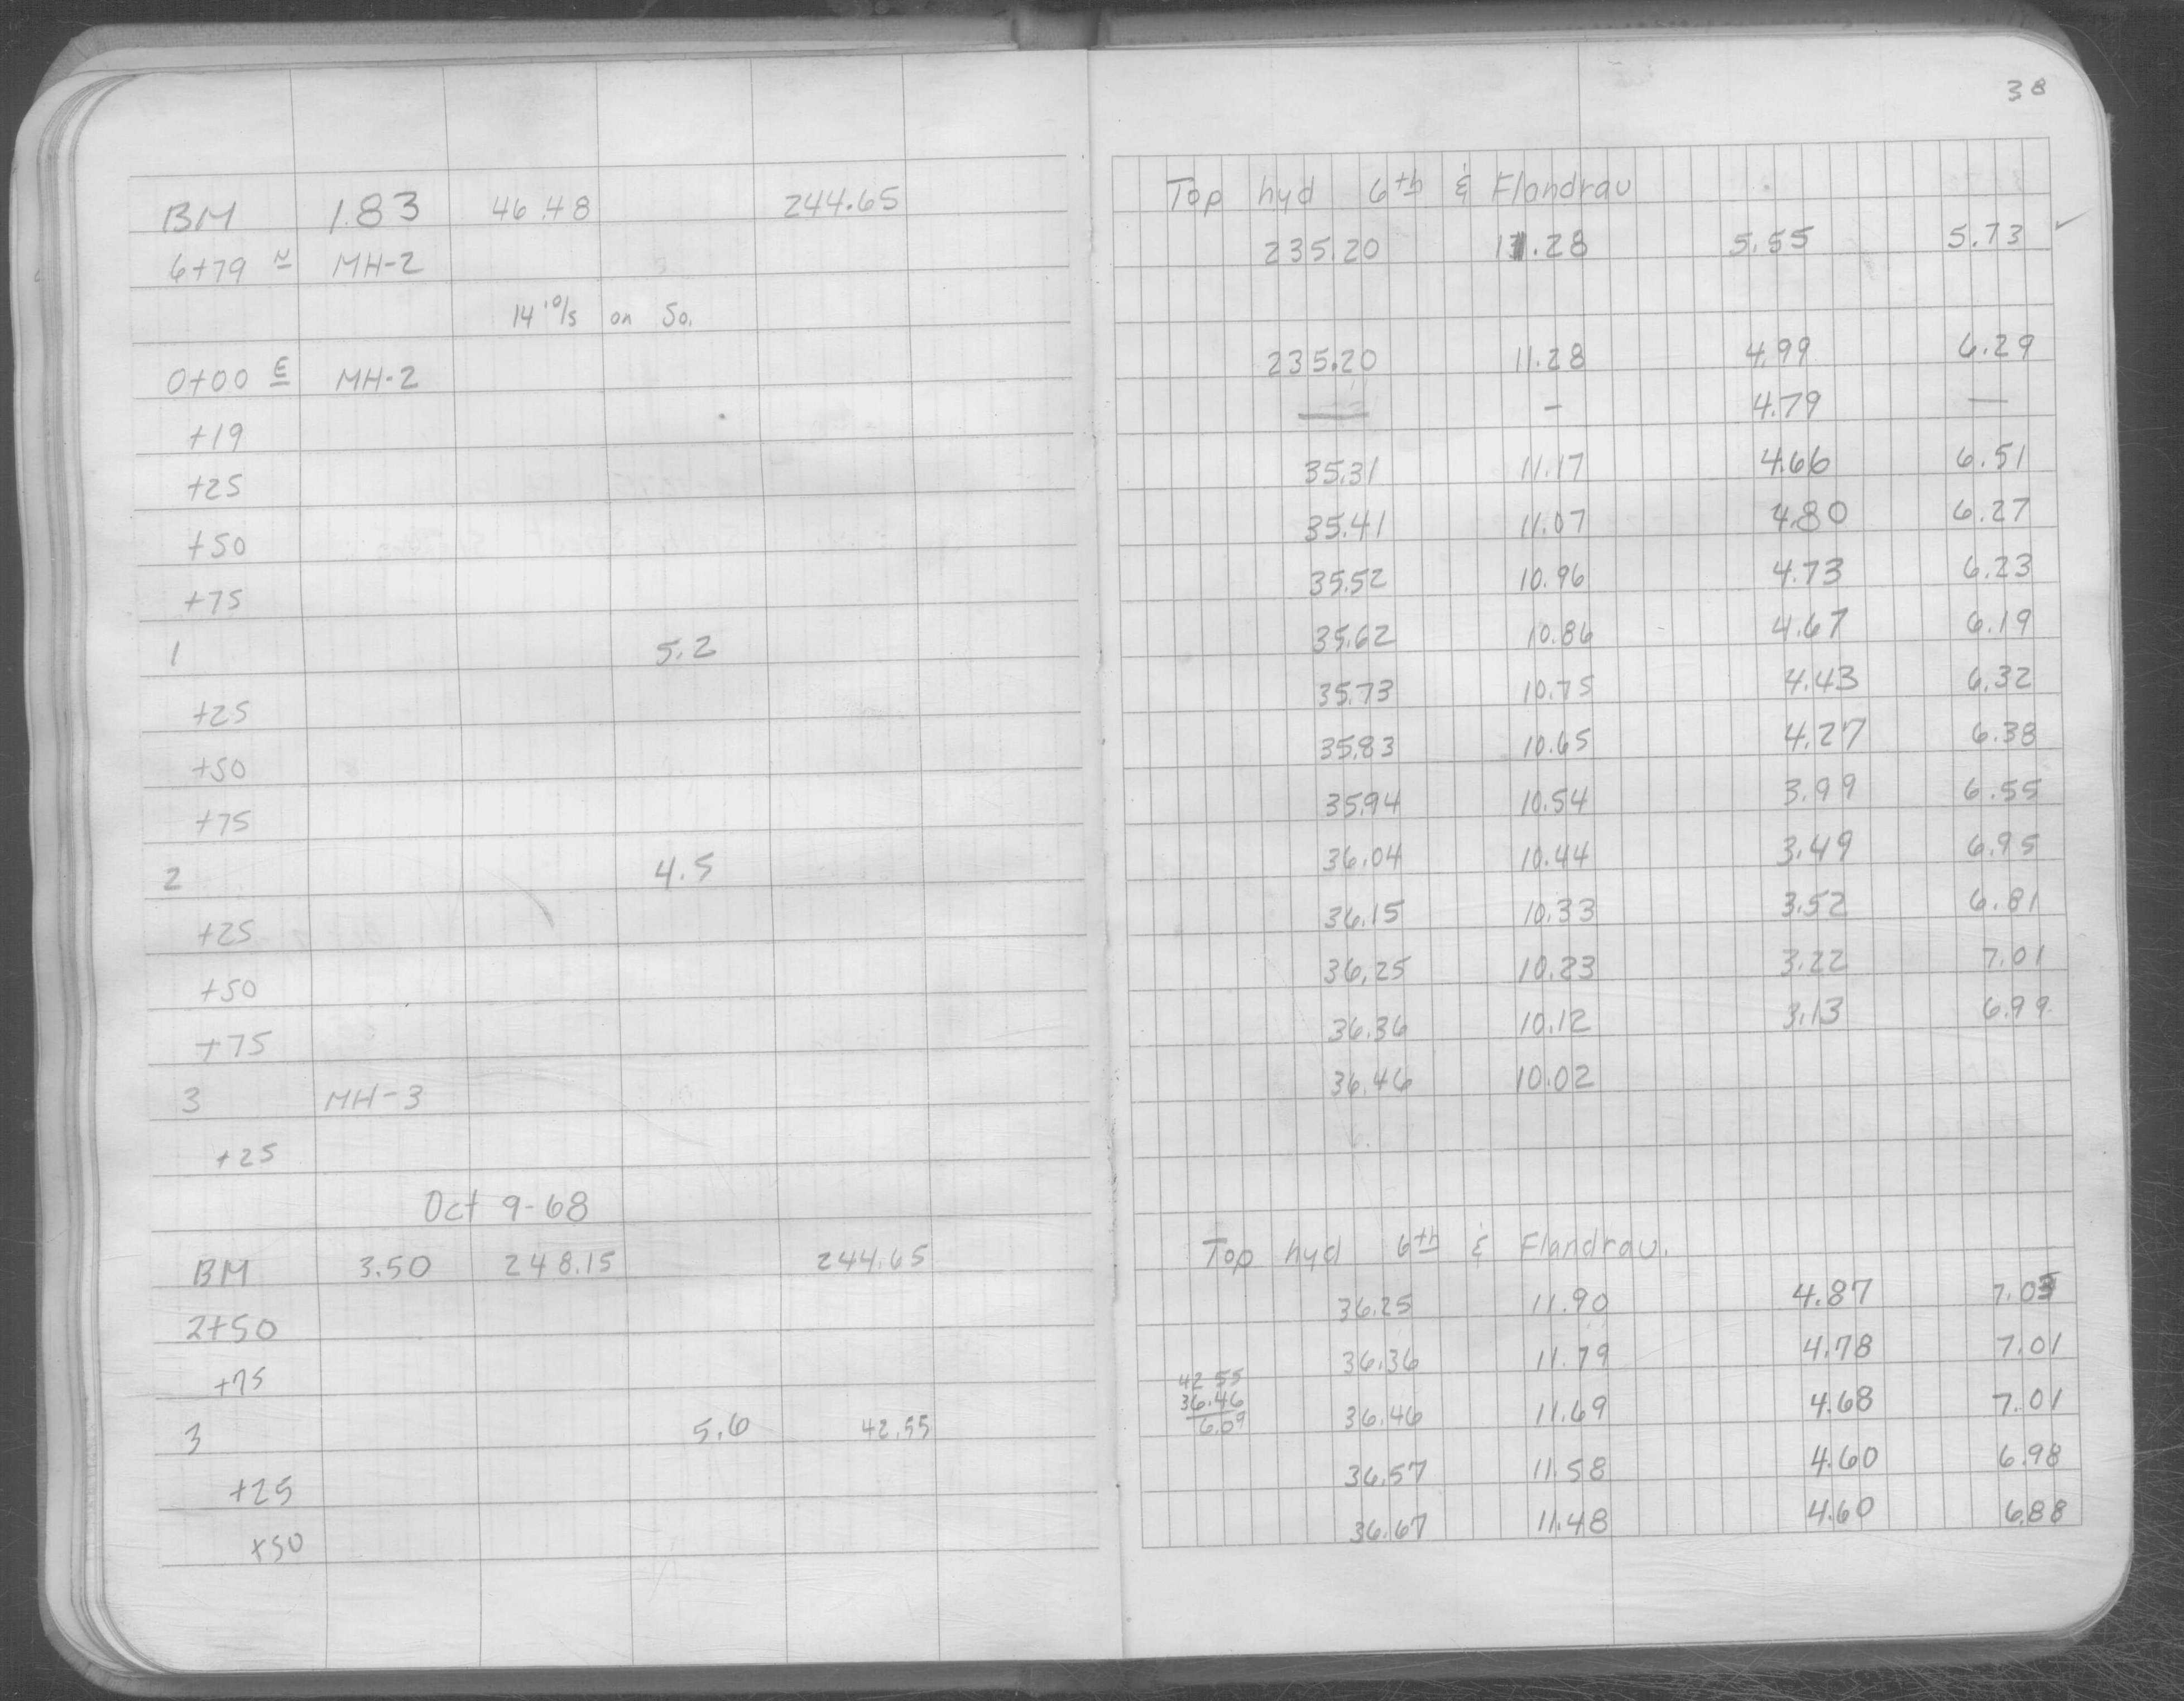 38
BM 1.83 46.48 244.65 Top hyd 6th & Flandrau
6+79 N MH-2 235.20 11.28 5.55 5.73 ✓
14' o/s on So.
0+00 E MH-2 235.20 11.28 4.99 6.29
+19 — – 4.79 —
+25 35.31 11.17 4.66 6.51
+50 35.41 11.07 4.80 6.27
+75 35.52 10.96 4.73 6.23
1 5.2 35.62 10.86 4.67 6.19
+25 35.73 10.75 4.43 6.32
+50 35.83 10.65 4.27 6.38
+75 35.94 10.54 3.99 6.55
2 4.5 36.04 10.44 3.49 6.95
+25 36.15 10.33 3.52 6.81
+50 36.25 10.23 3.22 7.01
+75 36.36 10.12 3.13 6.99
3 MH-3 36.46 10.02
+25
Oct 9-68
BM 3.50 248.15 244.65 Top hyd 6th & Flandrau.
2+50 36.25 11.90 4.87 7.03
+75 36.36 11.79 4.78 7.01
42 55
36.46
6.09
3 5.6 42.55 36.46 11.69 4.68 7.01
+25 36.57 11.58 4.60 6.98
+50 36.67 11.48 4.60 6.88